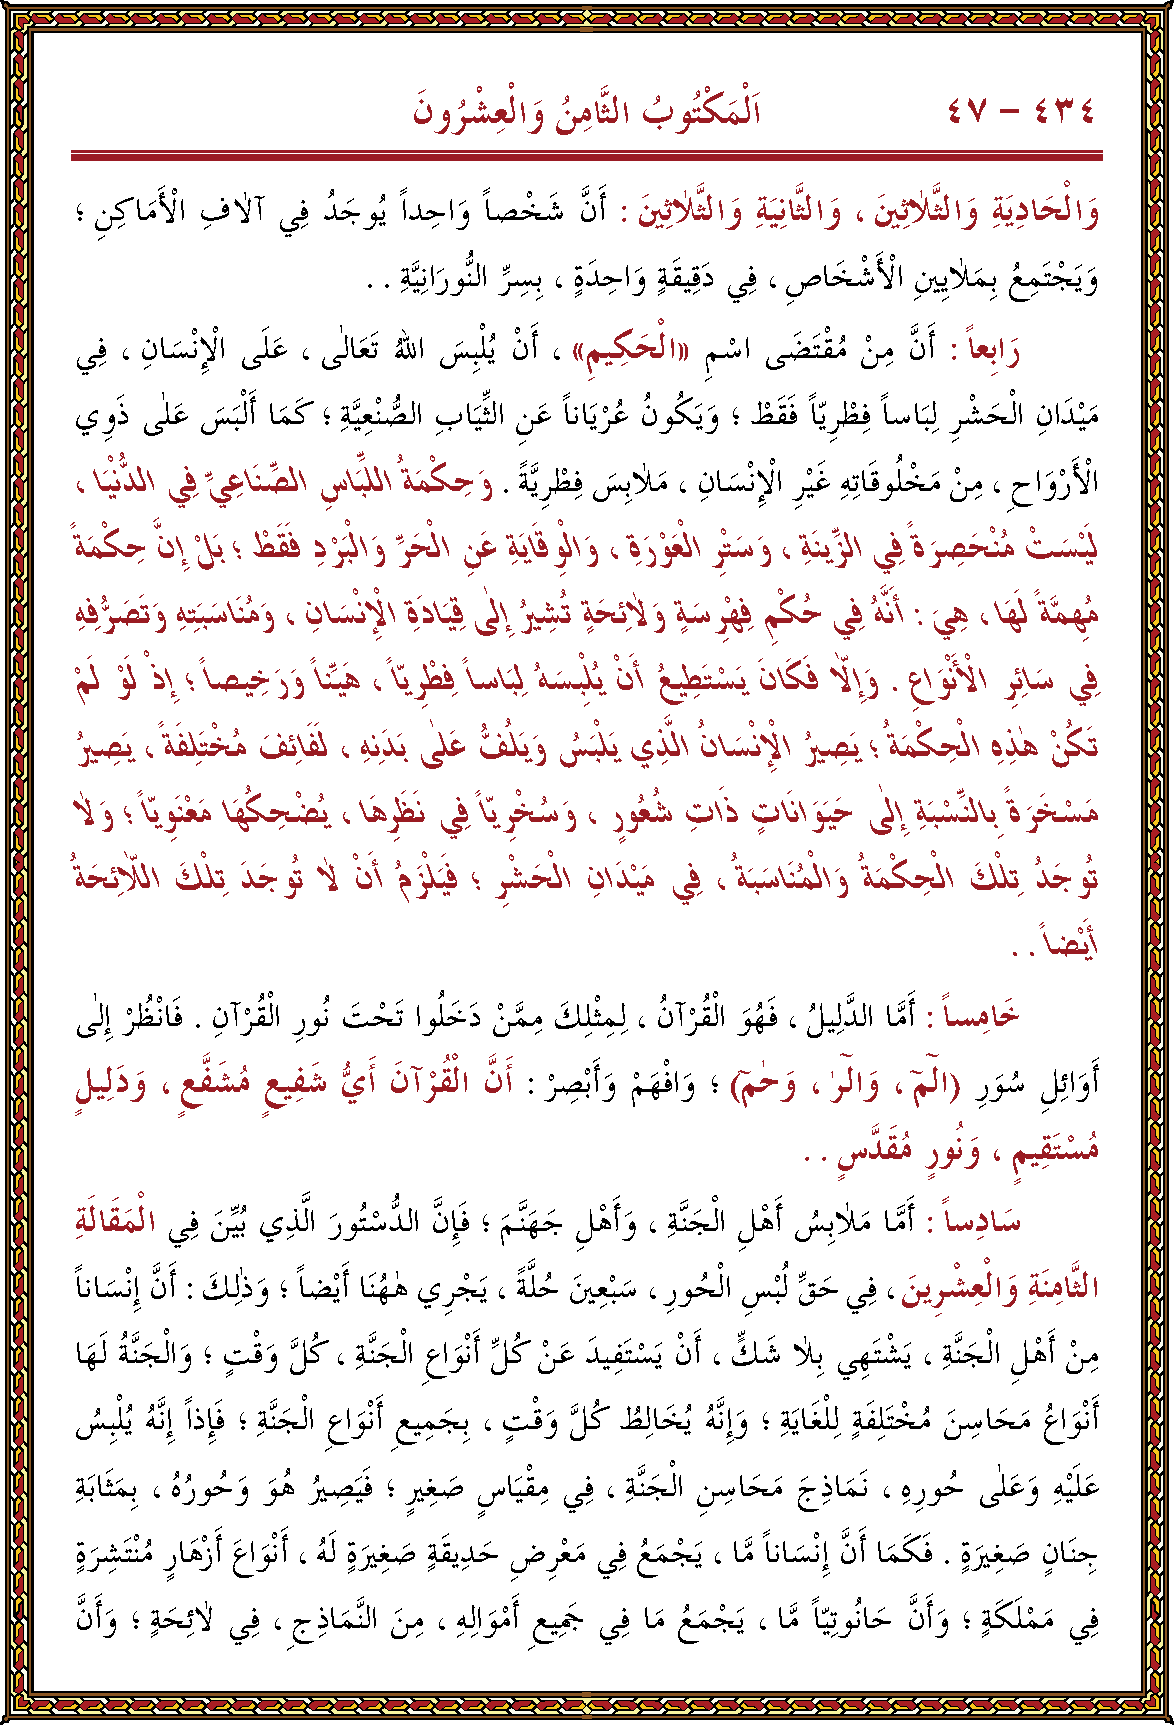 ٤٣٤ – ٤٧ اَلْمَكْتُوبُ الثَّامِنُ وَالْعِشْرُونَ
وَالْحَادِيَةِ وَالثَّلاٰثِينَ ، وَالثَّانِيَةِ وَالثَّلاٰثِينَ : أَنَّ شَخْصاً وَاحِداً يُوجَدُ فِي آلاٰفِ الْأَمَاكِنِ ؛
وَيَجْتَمِعُ بِمَلاٰيِينِ الْأَشْخَاصِ ، فِي دَقِيقَةٍ وَاحِدَةٍ ، بِسِرِّ النُّورَانِيَّةِ . .
رَابِعاً : أَنَّ مِنْ مُقْتَضَى اسْمِ «الْحَكِيمِ» ، أَنْ يُلْبِسَ اللهُ تَعَالٰى ، عَلَى الْإِنْسَانِ ، فِي
مَيْدَانِ الْحَشْرِ لِبَاساً فِطْرِيّاً فَقَطْ ؛ وَيَكُونُ عُرْيَاناً عَنِ الثِّيَابِ الصُّنْعِيَّةِ ؛ كَمَا أَلْبَسَ عَلٰى ذَوِي
الْأَرْوَاحِ ، مِنْ مَخْلُوقَاتِهِ غَيْرِ الْإِنْسَانِ ، مَلاٰبِسَ فِطْرِيَّةً . وَحِكْمَةُ اللِّبَاسِ الصِّنَاعِيِّ فِي الدُّنْيَا ،
لَيْسَتْ مُنْحَصِرَةً فِي الزِّينَةِ ، وَسَتْرِ الْعَوْرَةِ ، وَالْوِقَايَةِ عَنِ الْحَرِّ وَالْبَرْدِ فَقَطْ ؛ بَلْ إِنَّ حِكْمَةً
مُهِمَّةً لَهَا ، هِيَ : أَنَّهُ فِي حُكْمِ فِهْرِسَةٍ وَلاٰئِحَةٍ تُشِيرُ إِلٰى قِيَادَةِ الْإِنْسَانِ ، وَمُنَاسَبَتِهِ وَتَصَرُّفِهِ
فِي سَائِرِ الْأَنْوَاعِ . وَإِلاّٰ فَكَانَ يَسْتَطِيعُ أَنْ يُلْبِسَهُ لِبَاساً فِطْرِيّاً ، هَيِّناً وَرَخِيصاً ؛ إِذْ لَوْ لَمْ
تَكُنْ هٰذِهِ الْحِكْمَةُ ؛ يَصِيرُ الْإِنْسَانُ الَّذِي يَلْبَسُ وَيَلُفُّ عَلٰى بَدَنِهِ ، لَفَائِفَ مُخْتَلِفَةً ، يَصِيرُ
مَسْخَرَةً بِالنِّسْبَةِ إِلٰى حَيَوَانَاتٍ ذَاتِ شُعُورٍ ، وَسُخْرِيّاً فِي نَظَرِهَا ، يُضْحِكُهَا مَعْنَوِيّاً ؛ وَلاٰ
تُوجَدُ تِلْكَ الْحِكْمَةُ وَالْمُنَاسَبَةُ ، فِي مَيْدَانِ الْحَشْرِ ؛ فَيَلْزَمُ أَنْ لاٰ تُوجَدَ تِلْكَ اللاّٰئِحَةُ
أَيْضاً . .
خَامِساً : أَمَّا الدَّلِيلُ ، فَهُوَ الْقُرْآنُ ، لِمِثْلِكَ مِمَّنْ دَخَلُوا تَحْتَ نُورِ الْقُرْآنِ . فَانْظُرْ إِلٰى
أَوَائِلِ سُوَرِ (الٓمٓ ، وَالٓرٰ ، وَحٰمٓ) ؛ وَافْهَمْ وَأَبْصِرْ : أَنَّ الْقُرْآنَ أَيُّ شَفِيعٍ مُشَفَّعٍ ، وَدَلِيلٍ
مُسْتَقِيمٍ ، وَنُورٍ مُقَدَّسٍ . .
سَادِساً : أَمَّا مَلاٰبِسُ أَهْلِ الْجَنَّةِ ، وَأَهْلِ جَهَنَّمَ ؛ فَإِنَّ الدُّسْتُورَ الَّذِي بُيِّنَ فِي الْمَقَالَةِ
الثَّامِنَةِ وَالْعِشْرِينَ ، فِي حَقِّ لُبْسِ الْحُورِ ، سَبْعِينَ حُلَّةً ، يَجْرِي هٰهُنَا أَيْضاً ؛ وَذٰلِكَ : أَنَّ إِنْسَاناً
مِنْ أَهْلِ الْجَنَّةِ ، يَشْتَهِي بِلاٰ شَكٍّ ، أَنْ يَسْتَفِيدَ عَنْ كُلِّ أَنْوَاعِ الْجَنَّةِ ، كُلَّ وَقْتٍ ؛ وَالْجَنَّةُ لَهَا
أَنْوَاعُ مَحَاسِنَ مُخْتَلِفَةٍ لِلْغَايَةِ ؛ وَإِنَّهُ يُخَالِطُ كُلَّ وَقْتٍ ، بِجَمِيعِ أَنْوَاعِ الْجَنَّةِ ؛ فَإِذاً إِنَّهُ يُلْبِسُ
عَلَيْهِ وَعَلٰى حُورِهِ ، نَمَاذِجَ مَحَاسِنِ الْجَنَّةِ ، فِي مِقْيَاسٍ صَغِيرٍ ؛ فَيَصِيرُ هُوَ وَحُورُهُ ، بِمَثَابَةِ
جِنَانٍ صَغِيرَةٍ . فَكَمَا أَنَّ إِنْسَاناً مَّا ، يَجْمَعُ فِي مَعْرِضِ حَدِيقَةٍ صَغِيرَةٍ لَهُ ، أَنْوَاعَ أَزْهَارٍ مُنْتَشِرَةٍ
فِي مَمْلَكَةٍ ؛ وَأَنَّ حَانُوتِيّاً مَّا ، يَجْمَعُ مَا فِي جَمِيعِ أَمْوَالِهِ ، مِنَ النَّمَاذِجِ ، فِي لاٰئِحَةٍ ؛ وَأَنَّ